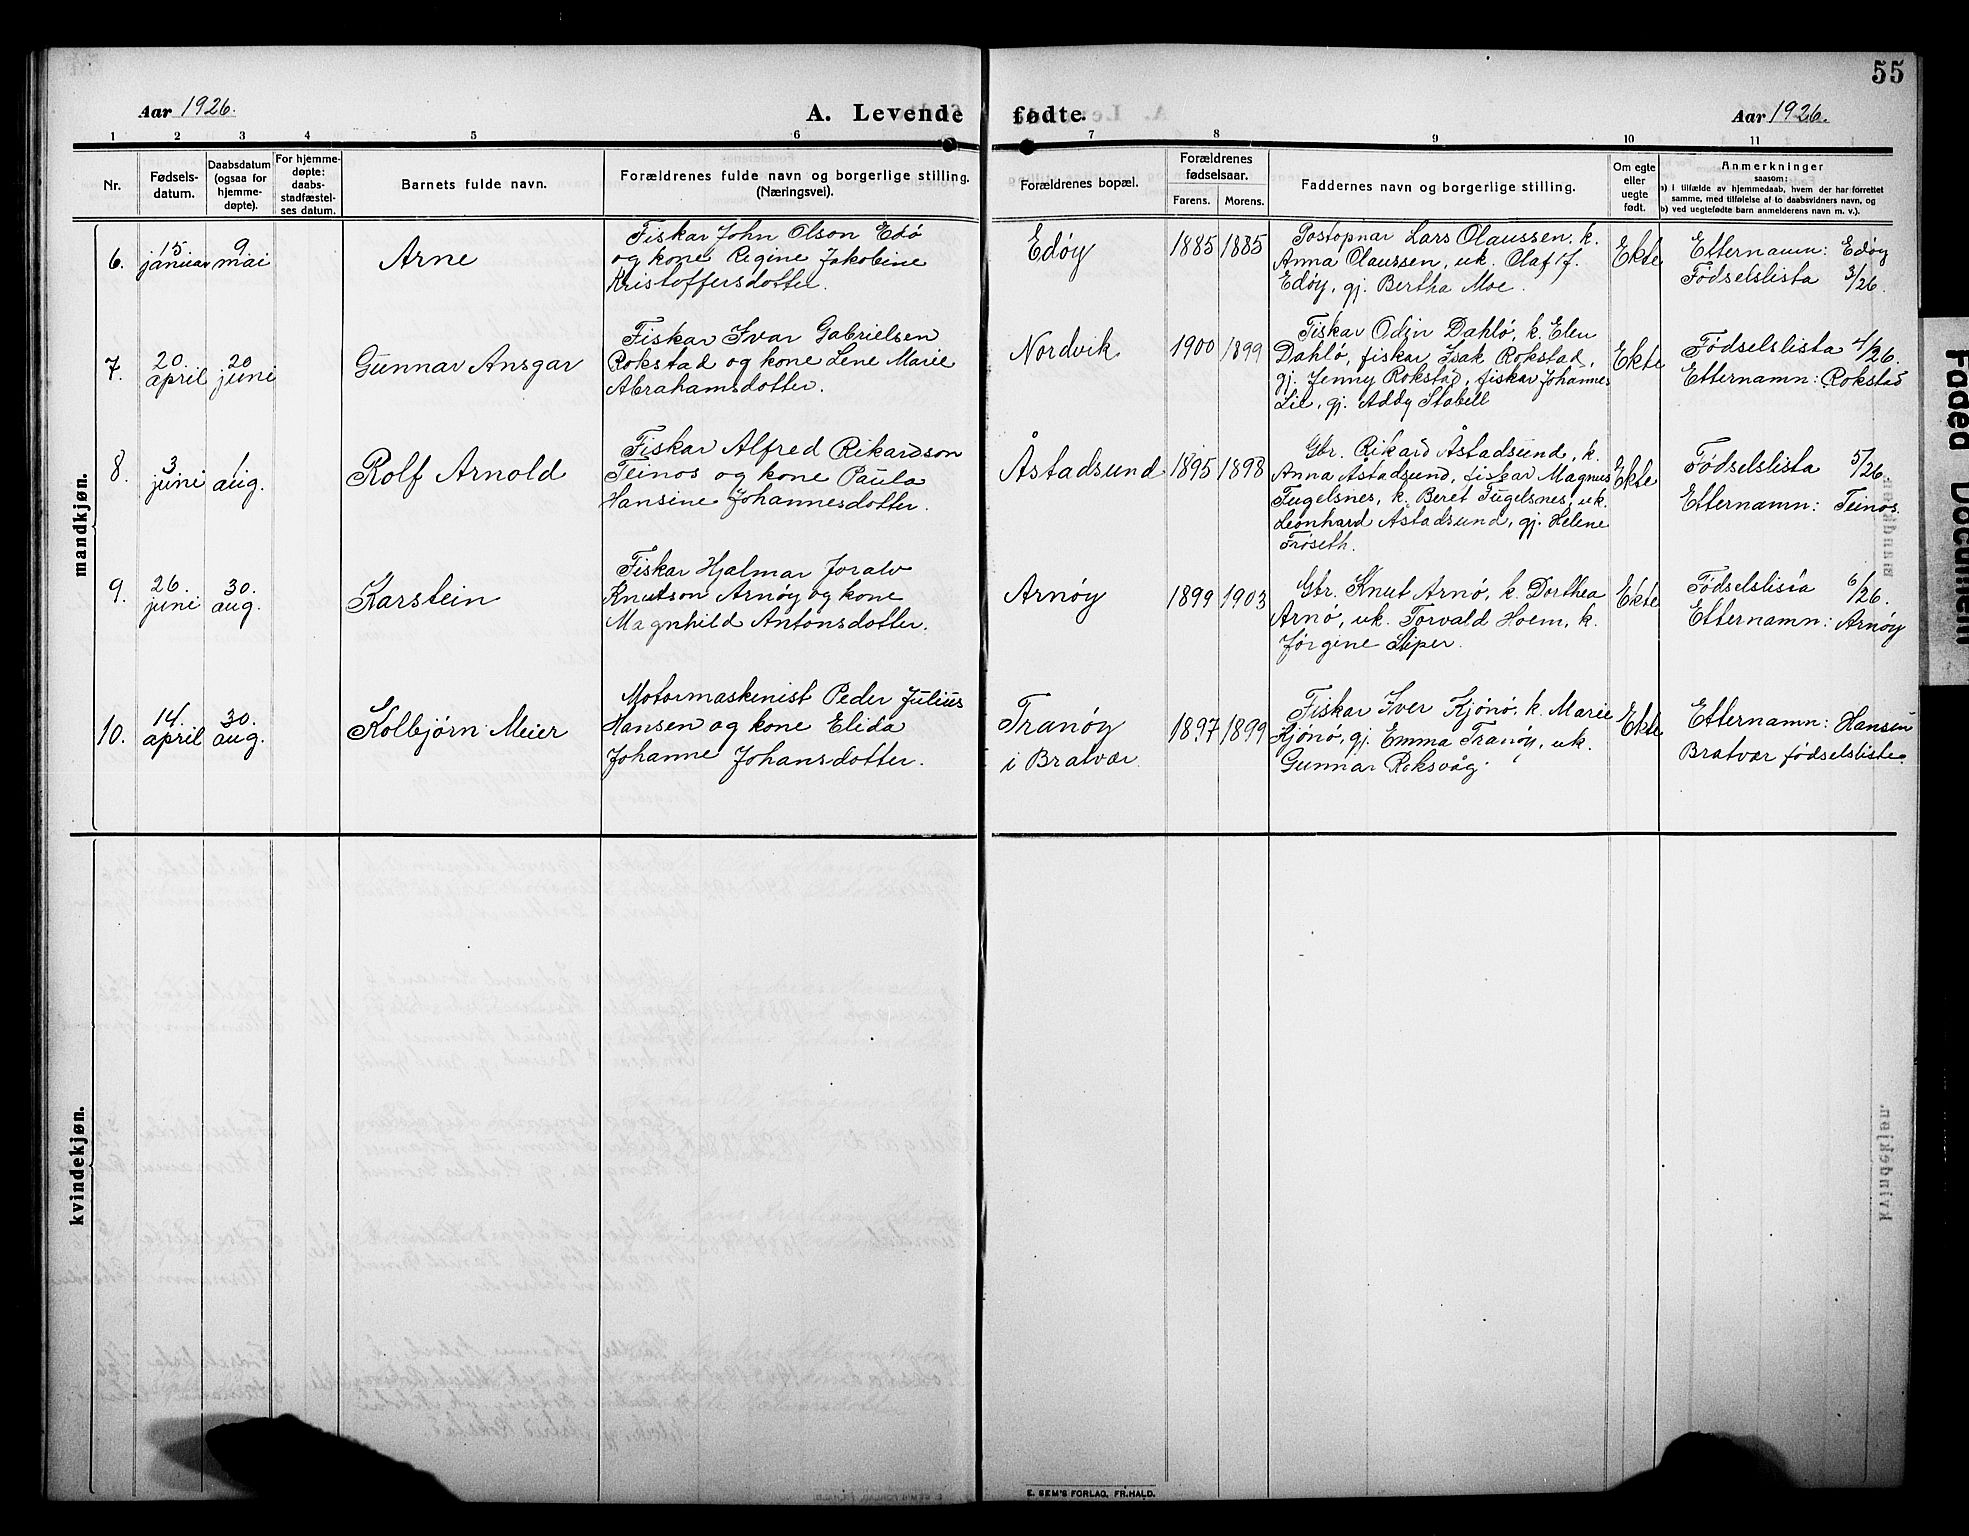 55
Aar 1926.
A. Levende fødte.
Aar 1926.
1 2 3 4 5 6 7 8 9 10 11
Nr.
Fødsels-
datum.
Daabsdatum
(ogsaa for
hjemme-
døpte).
For hjemme-
døpte:
daabs-
stadfæstel-
ses datum.
Barnets fulde navn.
Forældrenes fulde navn og borgerlige stilling.
(Næringsvei).
Forældrenes bopæl.
Forældrenes
fødselsaar.
Farens. Morens.
Faddernes navn og borgerlige stilling.
Om egte
eller
uegte
født.
Anmerkninger
saasom:
a) i tilfælde av hjemmedaab, hvem der har forrettet
samme, med tilføielse af to daabsvidners navn, og
b) ved uegtefødte barn anmelderens navn m. v.).
mandkjøn.
6.
15
januar
9
mai
Arne
Fiskar John Olson Edø
og kone Regine Jakobine
Kristoffersdotter.
Edøy
1885 1885
Postopnar Lars Olaussen, k.
Anna Olaussen, uk. Olaf J.
Edøy, gj. Bertha Moe.
Ekte
Etternamn: Edøy
Fødselslista 3/26.
7.
20.
april
20
juni
Gunnar Ansgar
Fiskar Ivar Gabrielsen
Rokstad og kone Lene Marie
Abrahamsdotter.
Nordvik
1900 1899
Fiskar Odin Dahlø, k. Elen
Dahlø, fiskar Isak Rokstad,
gj. Jenny Rokstad, fiskar Johannes
Lie, gj. Addy Stabell
Ekte
Fødselslista 4/26.
Etternamn: Rokstad
8.
3.
juni
1.
aug.
Rolf Arnold
Fiskar Alfred Rikardson
Teinos og kone Paula
Hansine Johannesdotter.
Åstadsund
1895 1898
Gbr. Rikard Åstadsund, k.
Anna Åstadsund, fiskar Magnus
Fugelsnes, k. Beret Fugelsnes, uk.
Leonhard Åstadsund, gj. Helene
Frøseth.
Ekte
Fødselslista 5/26.
Etternamn: Teinos.
9.
26.
juni
30.
aug.
Karstein
Fiskar Hjalmar Joralv
Knutson Arnøy og kone
Magnhild Antonsdotter.
Arnøy
1899 1903
Gbr. Knut Arnø, k. Dorthea
Arnø, uk. Torvald Hoem, k.
Jørgine Siper.
Ekte
Fødselslista 6/26.
Etternamn: Arnøy
10.
14.
april
30.
aug.
Kolbjørn Meier
Motormaskenist Peder Julius
Hansen og kone Elida
Johanne Johansdotter.
Tranøy
i Bratvær
1897 1899
Fiskar Iver Kjønø, k. Marie
Kjønø, gj. Emma Tranøy, uk.
Gunnar Roksvåg.
Ekte
Etternamn: Hansen
Bratvær fødselsliste.
kvindekjøn.
E. SEM'S FORLAG, FR.HALD.
Faded Document